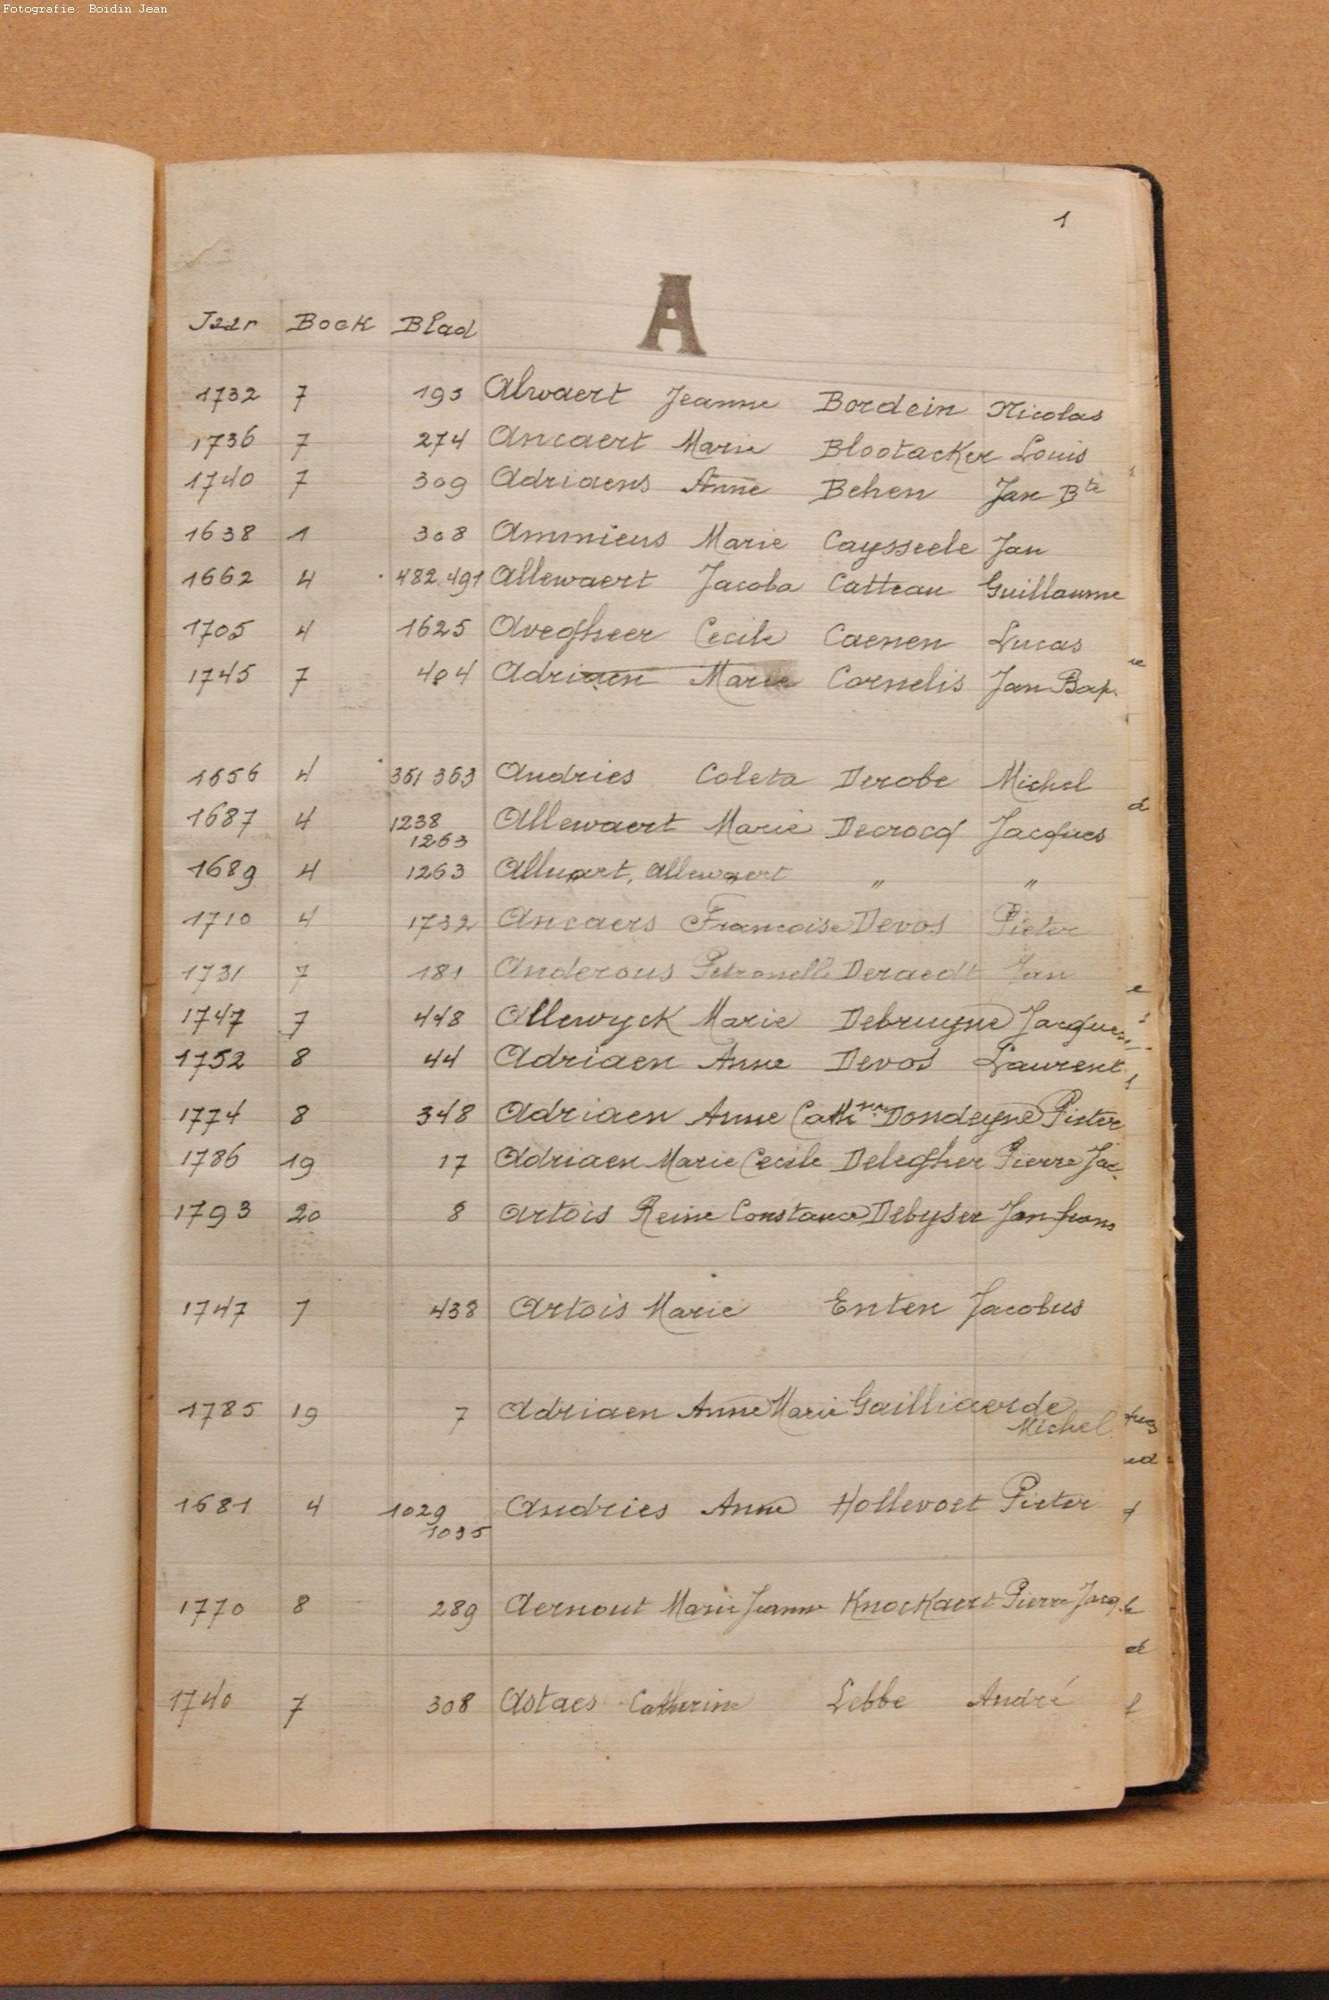 Fotografie: Boidin Jean
1
A
Jaar Boek Blad
1732 7 193 Alwaert Jeanne Bordein Nicolas
1736 7 274 Ancaert Marie Blootacker Louis
1740 7 309 Adriaens Anne Behen Jan Bte
1638 1 308 Ammieus Marie Caysseele Jan
1662 4 482.491 Allewaert Jacoba Catteau Guillaume
1705 4 1625 Avegheer Cecile Caenen Lucas
1745 7 404 Adriaen Marie Cornelis Jan Bap.
1656 4 361 363 Andries Coleta Derobe Michel
1687 4 1238 Allewaert Marie Decrocq Jacques
1263
1689 4 1263 Alluart, Allewaert " "
1710 4 1732 Ancaers Francoise Devos Pieter
1731 7 181 Anderous Petronelle Deraedt Jan
1747 7 448 Allewyck Marie Debruyne Jacques
1752 8 44 Adriaen Anne Devos Laurent
1774 8 348 Adriaen Anne Cathne Dondeyne Pieter
1786 19 17 Adriaen Marie Cecile Delegher Pierre Jac.
1793 20 8 Artois Reine Constance Debyser Jan frans
1747 7 438 Artois Marie Enten Jacobus
1785 19 7 Adriaen Anne Marie Gailliaerde
Michel
1681 4 1029 Andries Anne Hollevoet Pieter
1035
1770 8 289 Aernout Marie Jeanne Knockaert Pierre Jacq
1740 7 308 Astaes Catherine Lebbe André